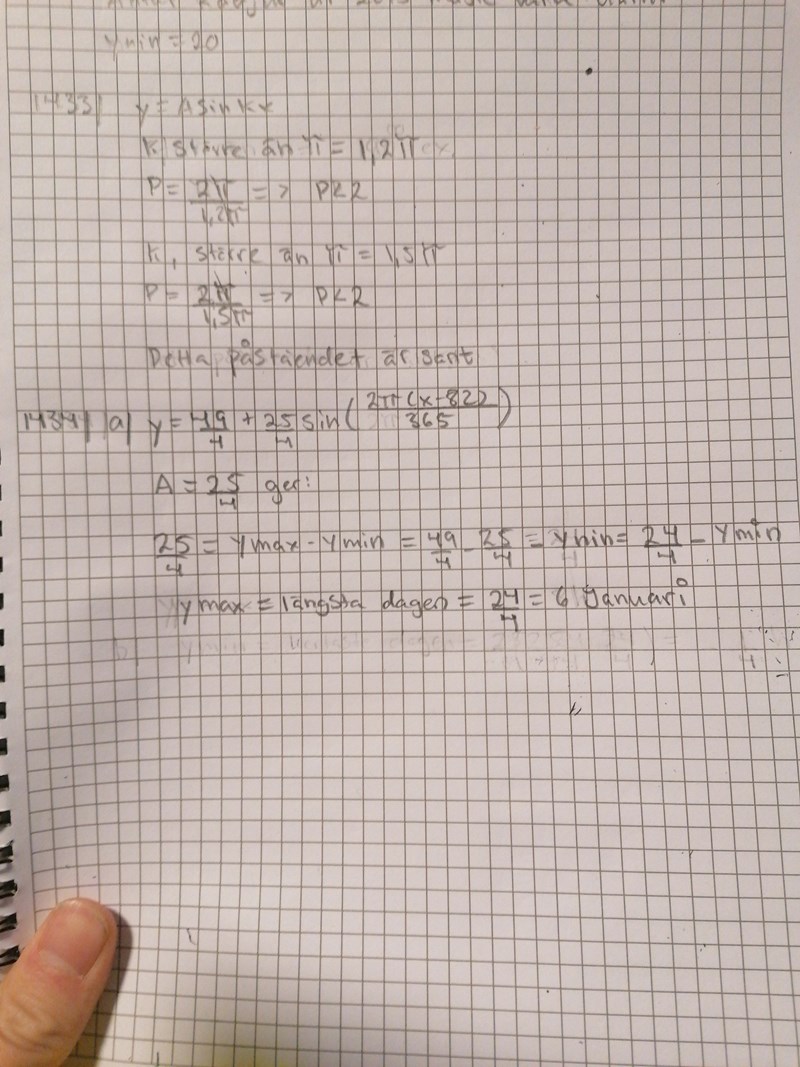 ymin = 20
1433) y = A sin kx
K större än π = 1,2π
P = 2π/1,2π => P<2
K, större än π = 1,5π
P = 2π/1,5π => P<2
Detta påståendet är sant
1434) a) y = 49/4 + 25/4 sin(2π(x-82)/365)
A = 25/4 ger:
25/4 = ymax - ymin = 49/4 - 25/4 = ymin = 24/4 - ymin
ymax = längsta dagen = 24/4 = 6 Januari